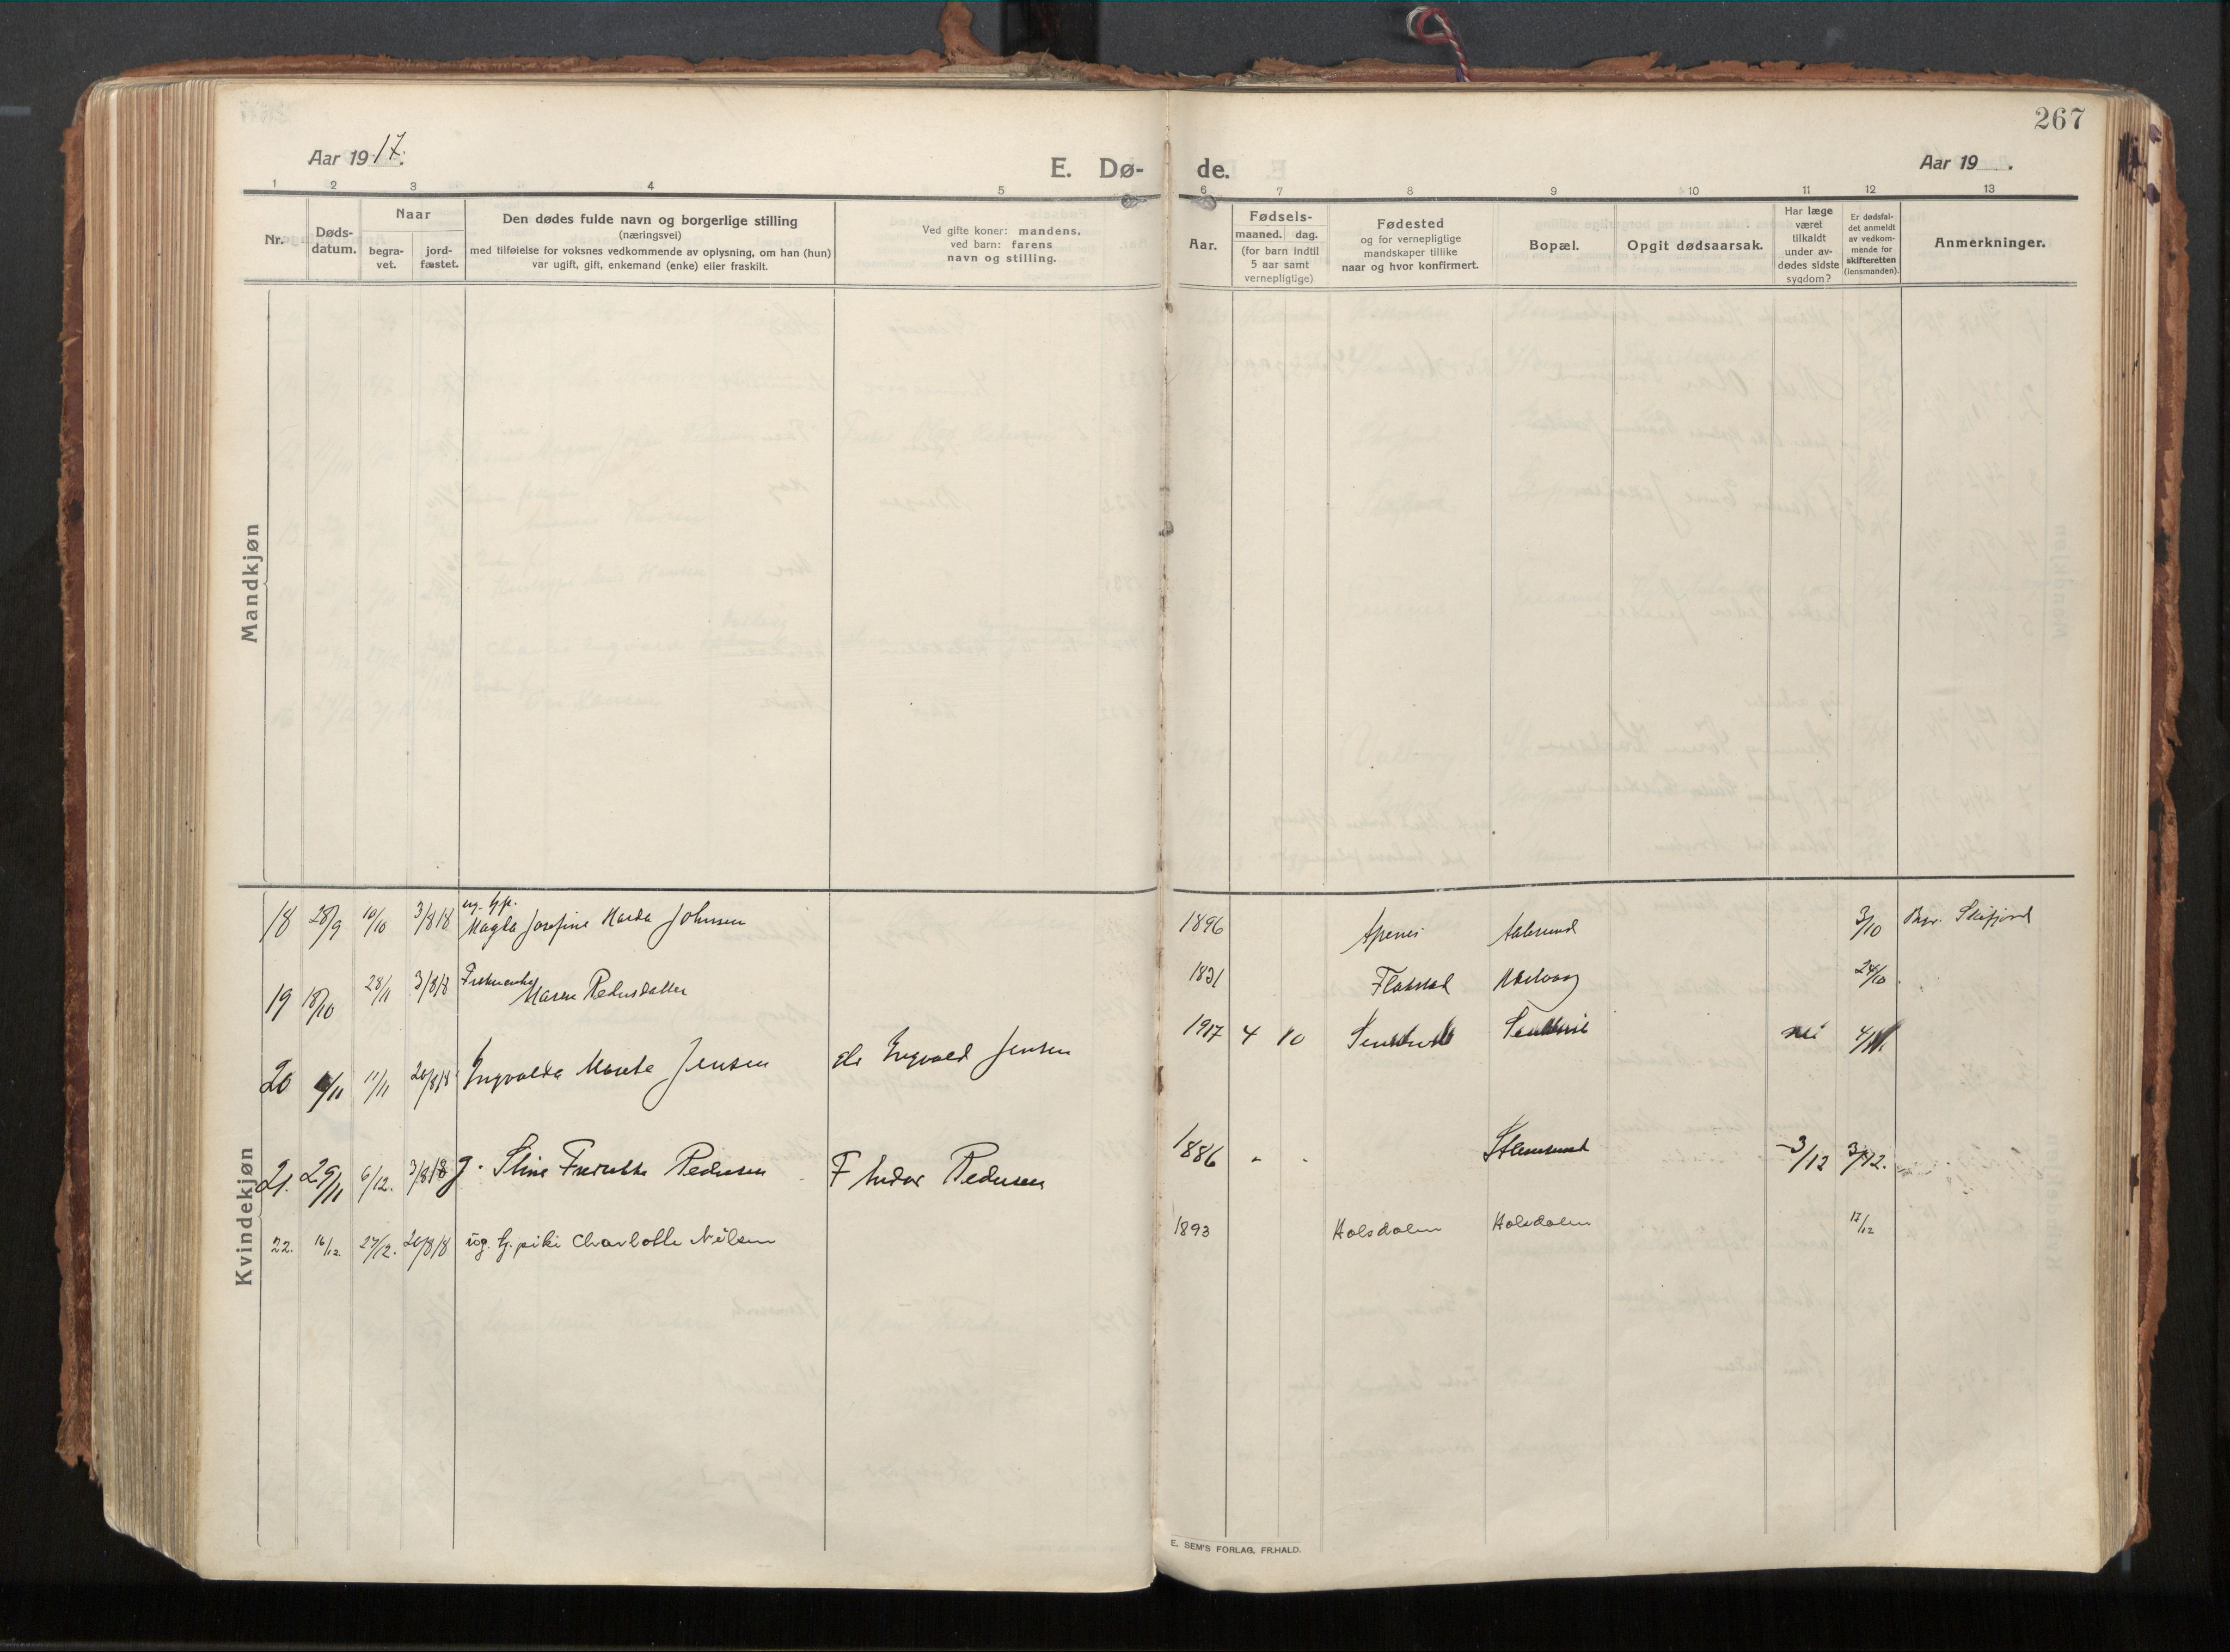 267
Aar 1917.
E. Dø-
de.
Aar 19 .
1 2 3 4 5 6 7 8 9 10 11 12 13
Nr.
Døds-
datum.
Naar
begra-
vet.
jord-
fæstet.
Den dødes fulde navn og borgerlige stilling
(næringsvei)
med tilføielse for voksnes vedkommende av oplysning, om han (hun)
var ugift, gift, enkemand (enke) eller fraskilt.
Ved gifte koner: mandens,
ved barn: farens
navn og stilling.
Aar.
Fødsels-
maaned. dag.
(for barn indtil
5 aar samt
vernepligtige)
Fødested
og for vernepligtige
mandskaper tillike
naar og hvor konfirmert.
Bopæl.
Opgit dødsaarsak.
Har læge
været
tilkaldt
under av-
dødes sidste
sygdom?
Er dødsfal-
det anmeldt
av vedkom-
mende for
skifteretten
(lensmanden).
Anmerkninger.
Mandkjøn
Kvindekjøn
18 28/9 10/10 3/8 18 ug. tjp. Magda Josefine Johnsen 1896 3/10 Begr.
19 18/10 28/11 3/8 18 Maren Pedersdatter 1831 Flakstad 24/10
20 /11 11/11 20/8 18 Ingvalda Jensen Ingvald Jensen 1917 4 10 nei
21. 29/11 6/12. 3/8 18 g. Stine Pedersen F Pedersen 1886 - - Stamsund 3/12 3/12.
22. 16/12. 27/12. 20/8 18 ug. tj. pike Charlotte Nilsen 1893 Holsdalen Holsdalen 17/12
E. SEM'S FORLAG, FR.HALD.